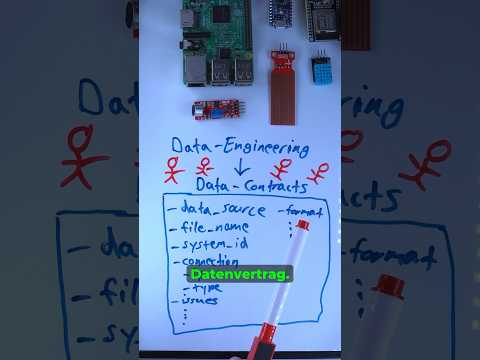 Data-Engineering
Data-Contracts
- data_source
- format
- file_name
- system_id
- connection
Datenvertrag.
- type
- issues